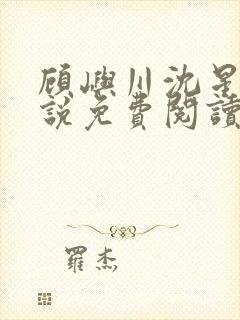 顾嶼川沈星
說免費閱讀
羅杰